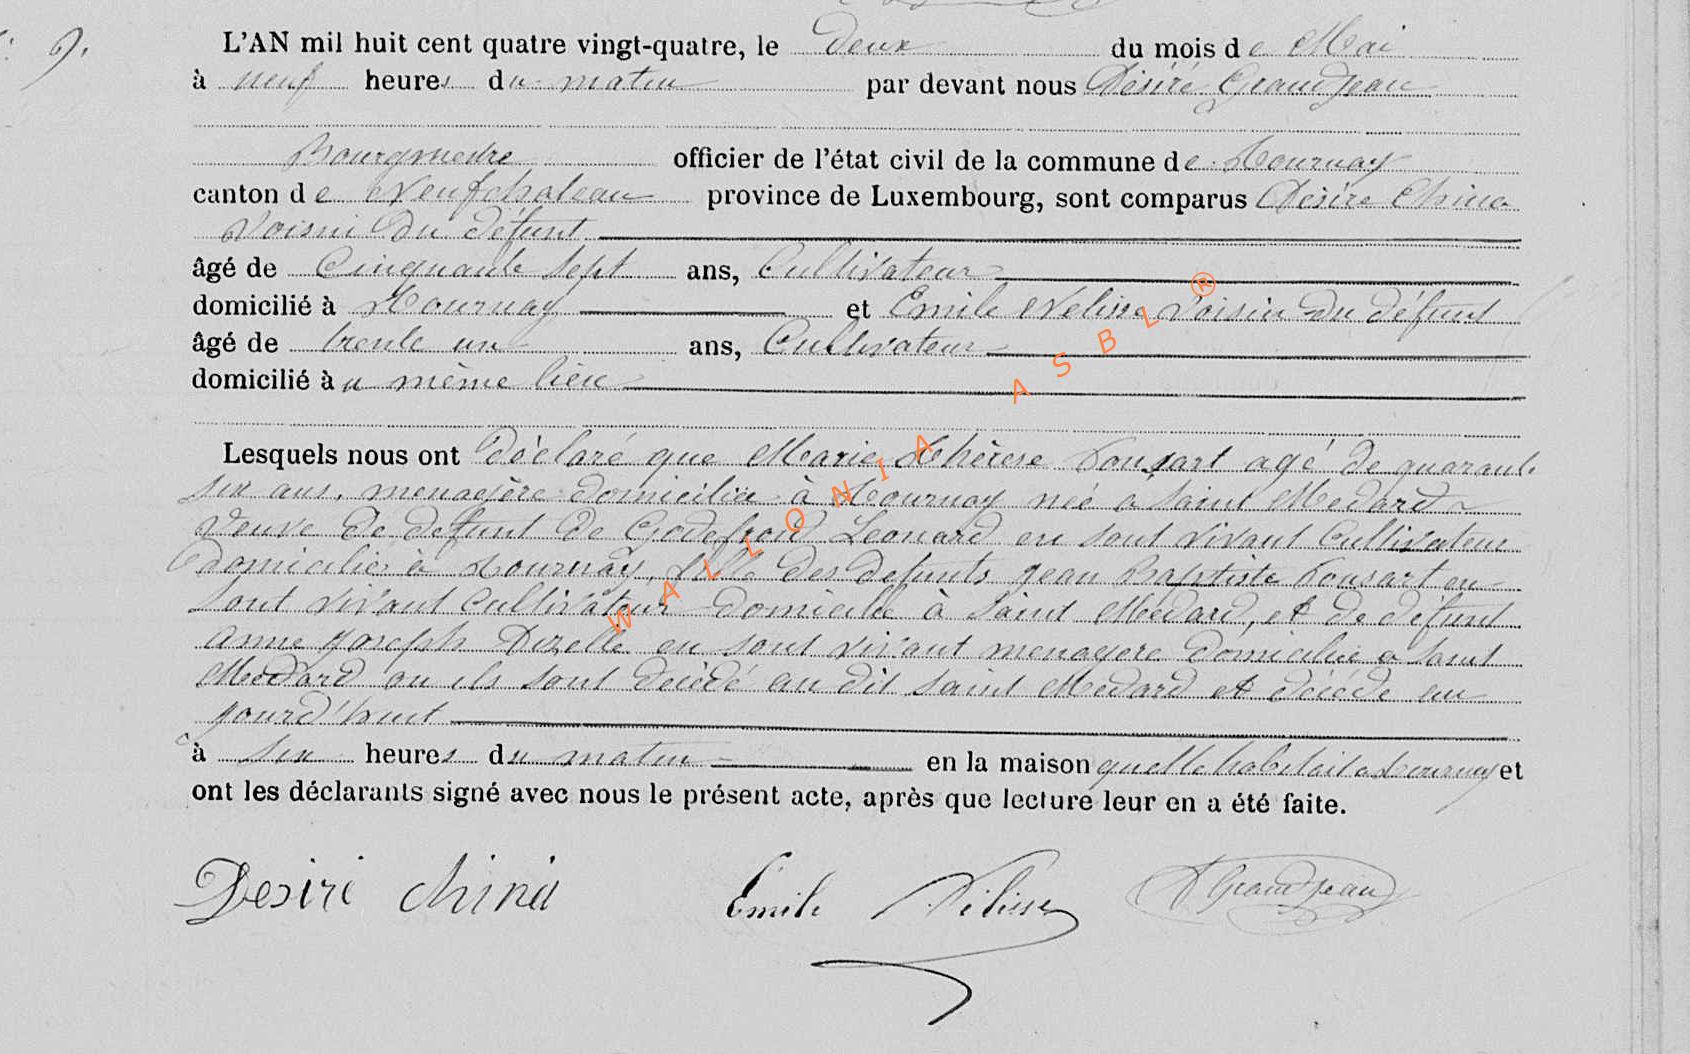 9.
L'AN mil huit cent quatre vingt-quatre, le deux du mois de Mai
à neuf heures du matin par devant nous Désiré Grandjean
Bourgmestre officier de l'état civil de la commune de Tournay
canton de Neufchateau province de Luxembourg, sont comparus Désiré China
Voisin du défunt
âgé de Cinquante sept ans, Cultivateur
domicilié à Tournay et Emile Nelisse Voisin du défunt
âgé de trente un ans, Cultivateur
domicilié à u même lieu
Lesquels nous ont déclaré que Marie Thérèse Pousart agé de quarante
six ans, menagère domiciliée à Tournay née a Saint Medard
Veuve de defunt de Godefroid Leonard en sont vivant Cultivateur
domicilié à Tournay, fille des defunts jean Baptiste Pousart en
sont vivant Cultivateur domicilié à Saint Medard, et de défunt
anne joseph en sont vivant menagere domiciliée a Saint
Meddard ou ils sont décédé au dit Saint Medard et décédé au
jourd'huit
à six heures du matin en la maison quelle habitait a Tournay et
ont les déclarants signé avec nous le présent acte, après que lecture leur en a été faite.
Desiré China Emile Nelisse D Grandjean
WALLONIA ASBL ®